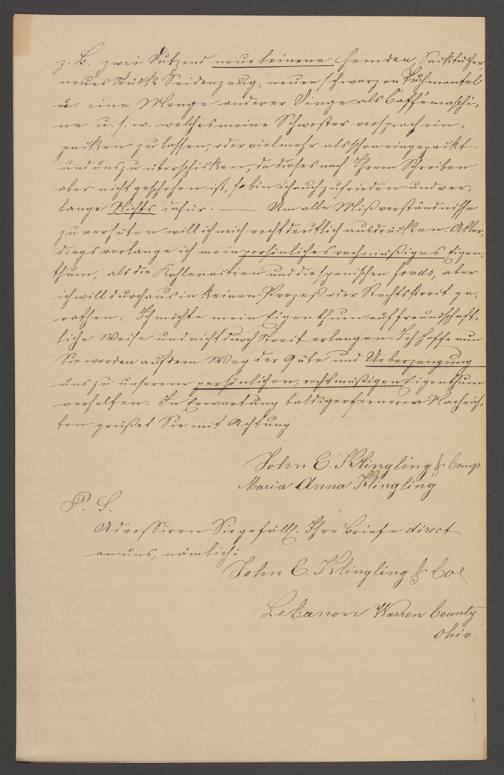 z. B. zwei Dutzend neue leinene Hemden, Sacktücher
neues Stück Seidenzeug, neuen schwarzen Tuchmantel
u. eine Menge anderer Dinge als Caffemaschi-
ne u. s. w. welches meine Schwester versprach ein-
packen zu lassen, oder vielmehr als schon eingepackt
und uns zu überschicken, da dieses nach Ihrem Schreiben
aber nicht geschehen ist, so bin ich auch zufrieden und ver-
lange Nichts dafür. — Um alle Mißverständnisse
zu verhüten will ich mich recht deutlich ausdrücken. Aller-
dings verlange ich mein persönliches rechmäßiges Eigen-
thum, als die Kohlenactien und die spanischen fonds, aber
ich will durchaus in keinen Prozeß oder Rechtsstreit ge-
rathen. Ich möchte mein Eigenthum auf freundschaft-
liche Weise und nicht durch Streit erlangen. Ich hoffe nun
Sie werden auf dem Weg der Güte und Ueberzeugung
uns zu unserem persönlichen, rechtmäßigen Eigenthum
verhelfen. In Erwartung baldiger fernerer Nachrich-
ten grüßet Sie mit Achtung
John C. Klingling &
Maria Anna Klingling
P. S.
Adressiren Sie gefäll. Ihre Briefe direct
an uns, nämlich:
John C. Klingling & Co
Lebanon Warren County
Ohio.